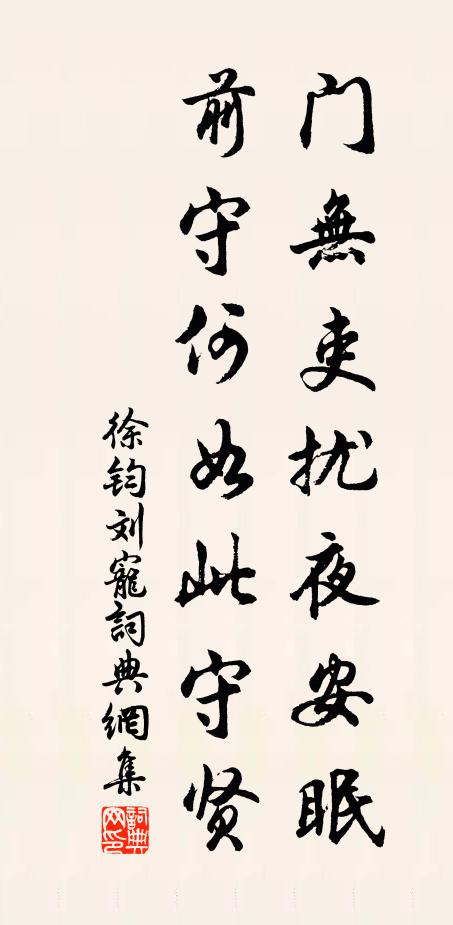 门無吏扰夜安眠
前守何如此守贤
徐钧刘寵詞典網集
詞典网印